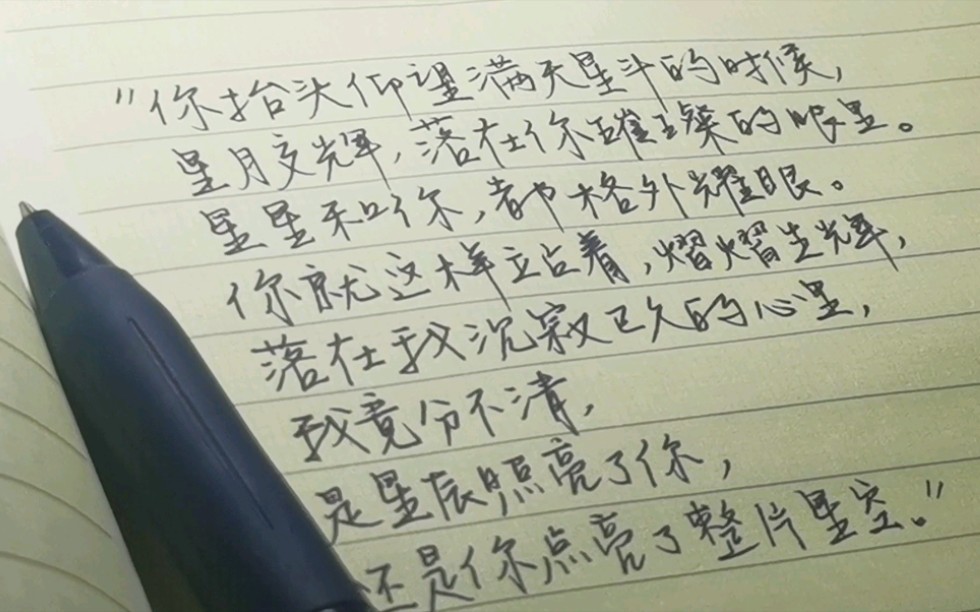 "你抬头仰望满天星斗的时候,
星月交辉,落在你璀璨的眼里。
星星和你,都格外耀眼。
你就这样立占着,熠熠生辉,
落在我沉寂已久的心里,
我竟分不清,
是星辰照亮了你,
还是你点亮了整片星空。"